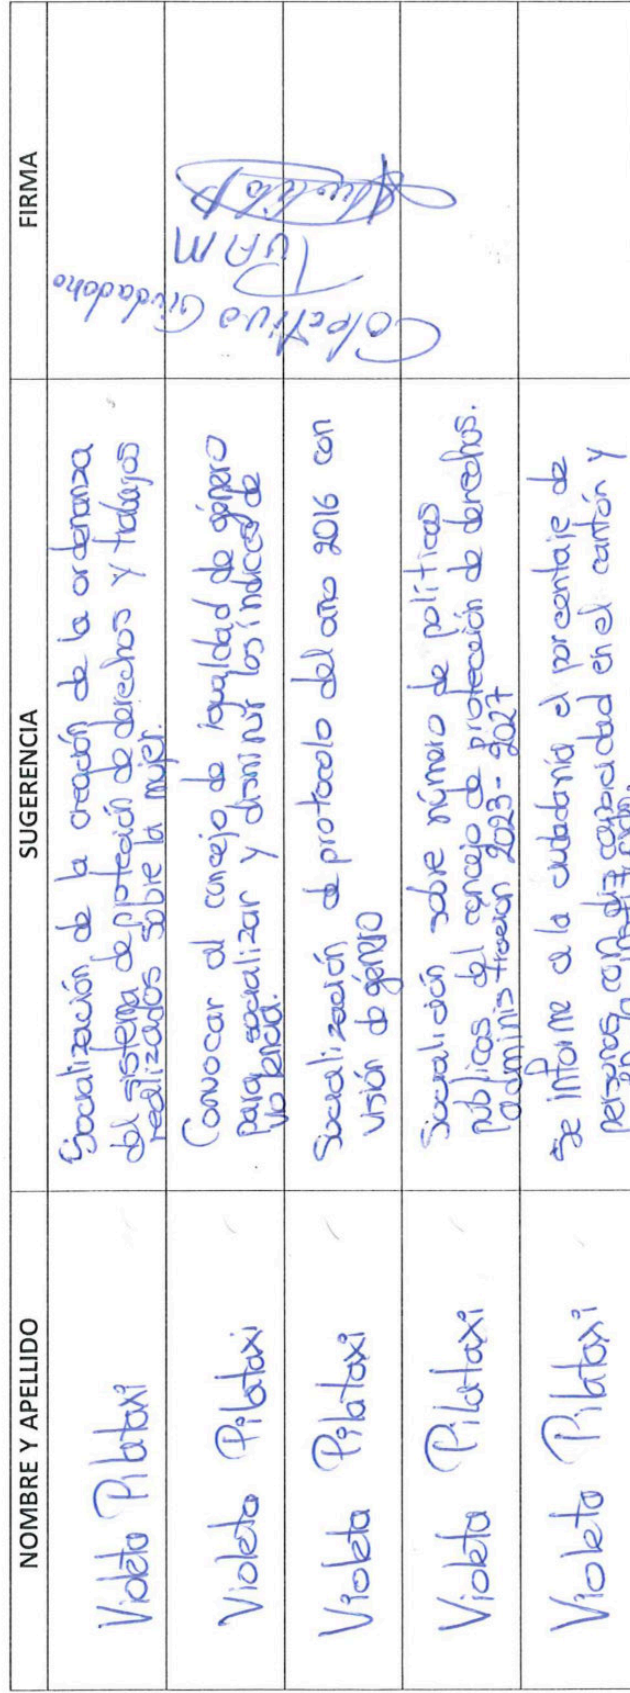 NOMBRE Y APELLIDO SUGERENCIA FIRMA
Violeta Pilataxi
Socialización de la creación de la ordenanza
del sistema de protección de derechos y trabajos
realizados sobre la mujer.
Violeta Pilataxi
Convocar al concejo de igualdad de género
para socializar y disminuir los indices de
violencia.
Violeta Pilataxi
Socialización de protocolo del año 2016 con
visión de género
Violeta Pilataxi
Socialición sobre número de políticas
públicas del concejo de protección de derechos.
administración 2023-2027
Violeta Pilataxi
Se informe a la ciudadanía el porcentaje de
personas con discapacidad en el cantón y
en la institución.
Colectivo Ciudadano